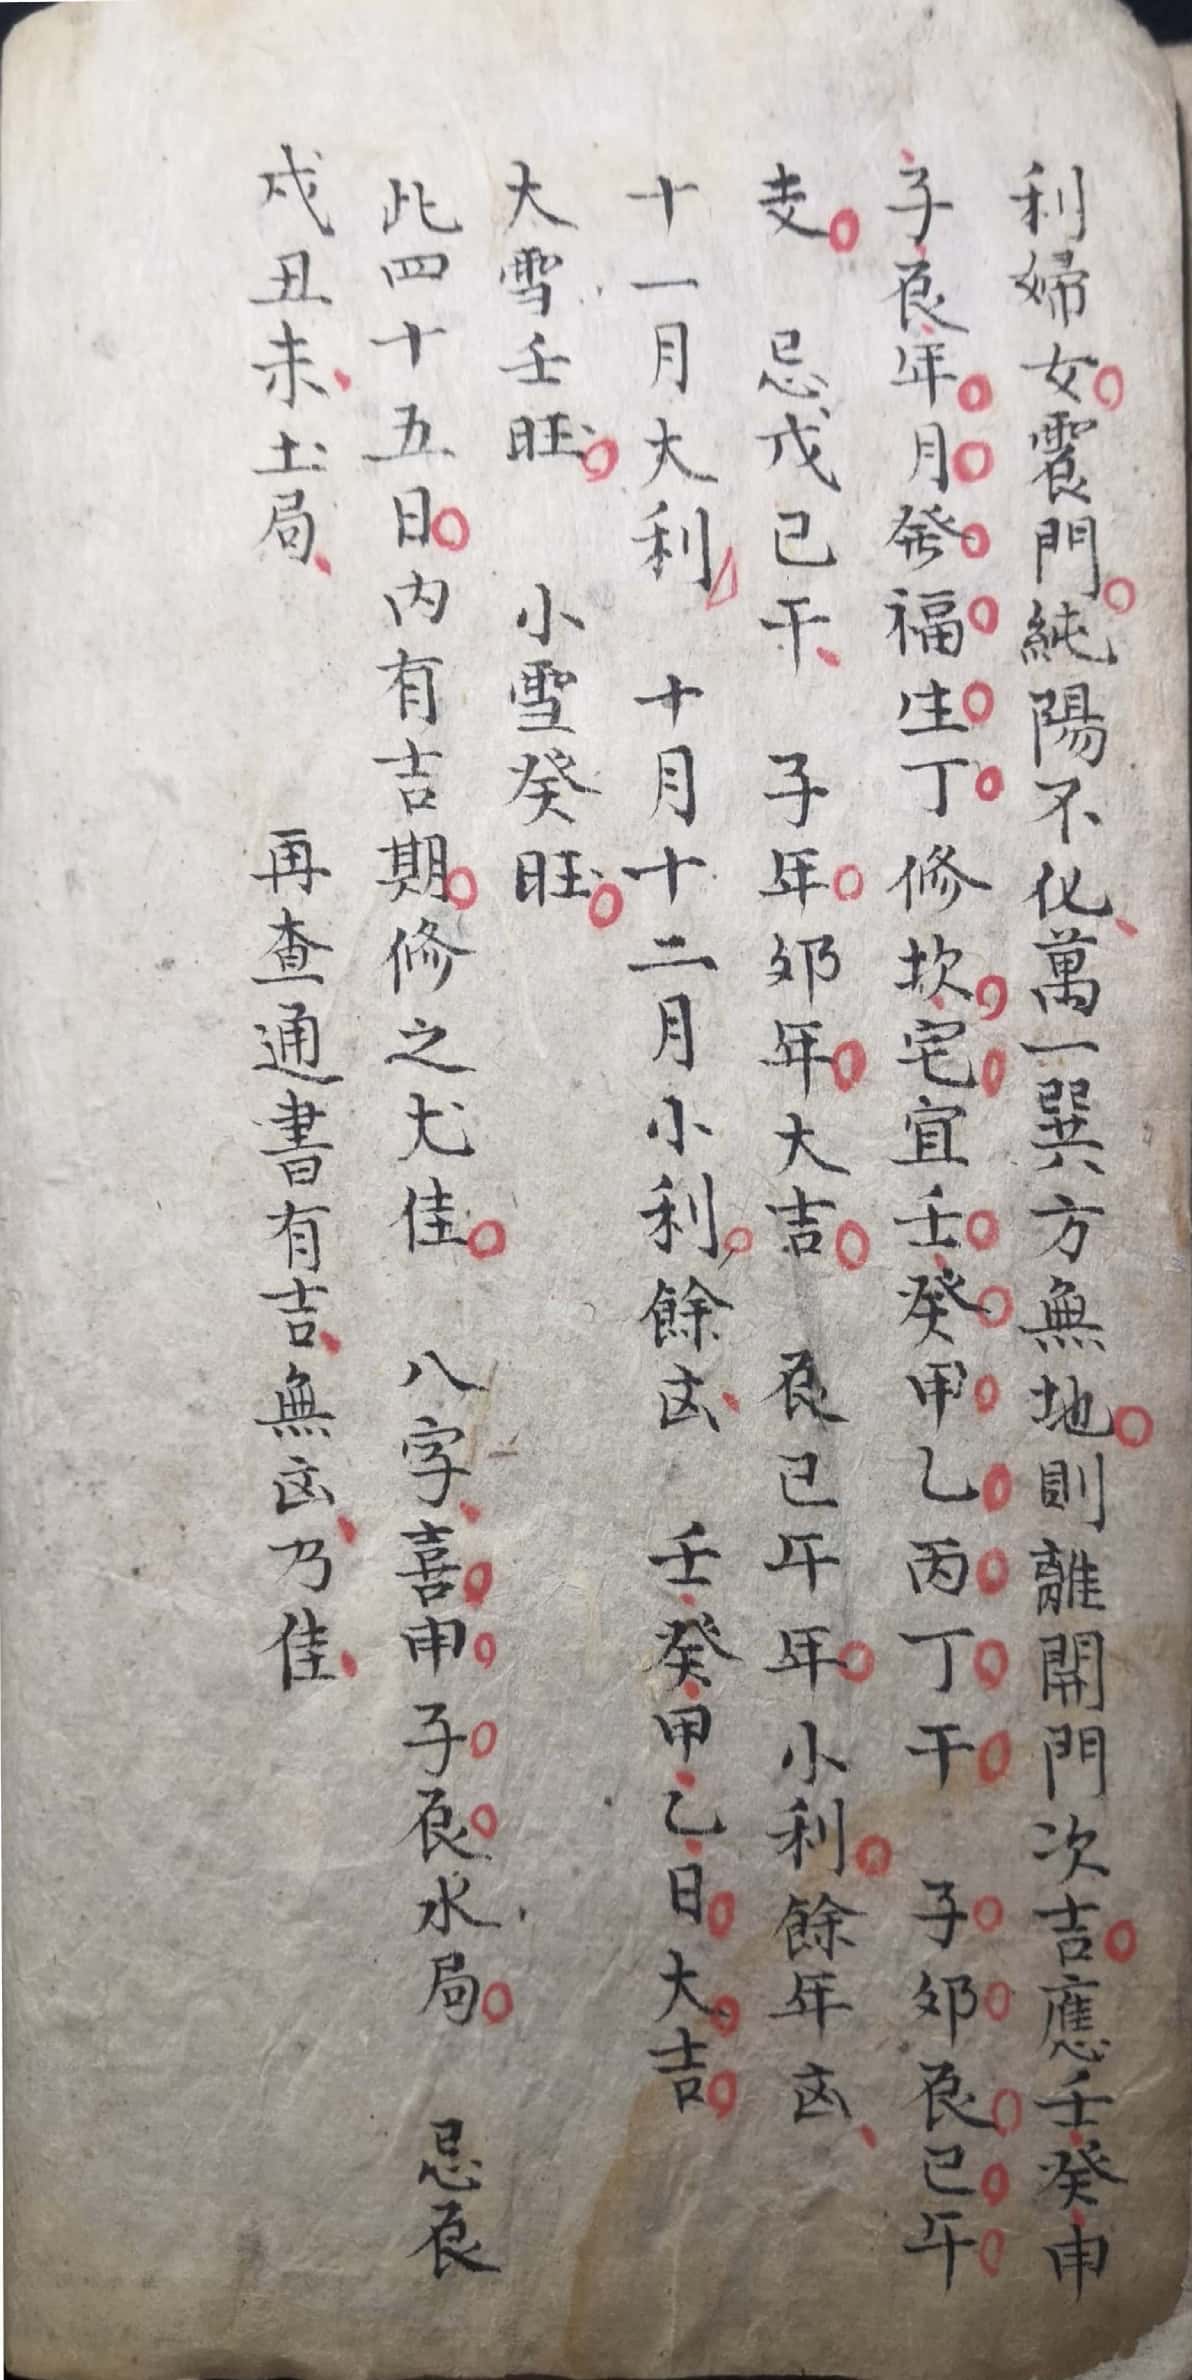 利婦女震門純陽不化萬一巽方無地則離開門次吉應壬癸申
子辰年月發福生丁修坎宅宜壬癸甲乙丙丁干 子卯辰巳午
支 忌戊己干 子年卯年大吉 辰巳午年小利餘年凶
十一月大利 十月十二月小利餘凶 壬癸甲乙日大吉
大雪壬旺 小雪癸旺
此四十五日内有吉期修之尤佳 八字喜申子辰水局 忌辰
戌丑未土局 再查通書有吉無凶乃佳